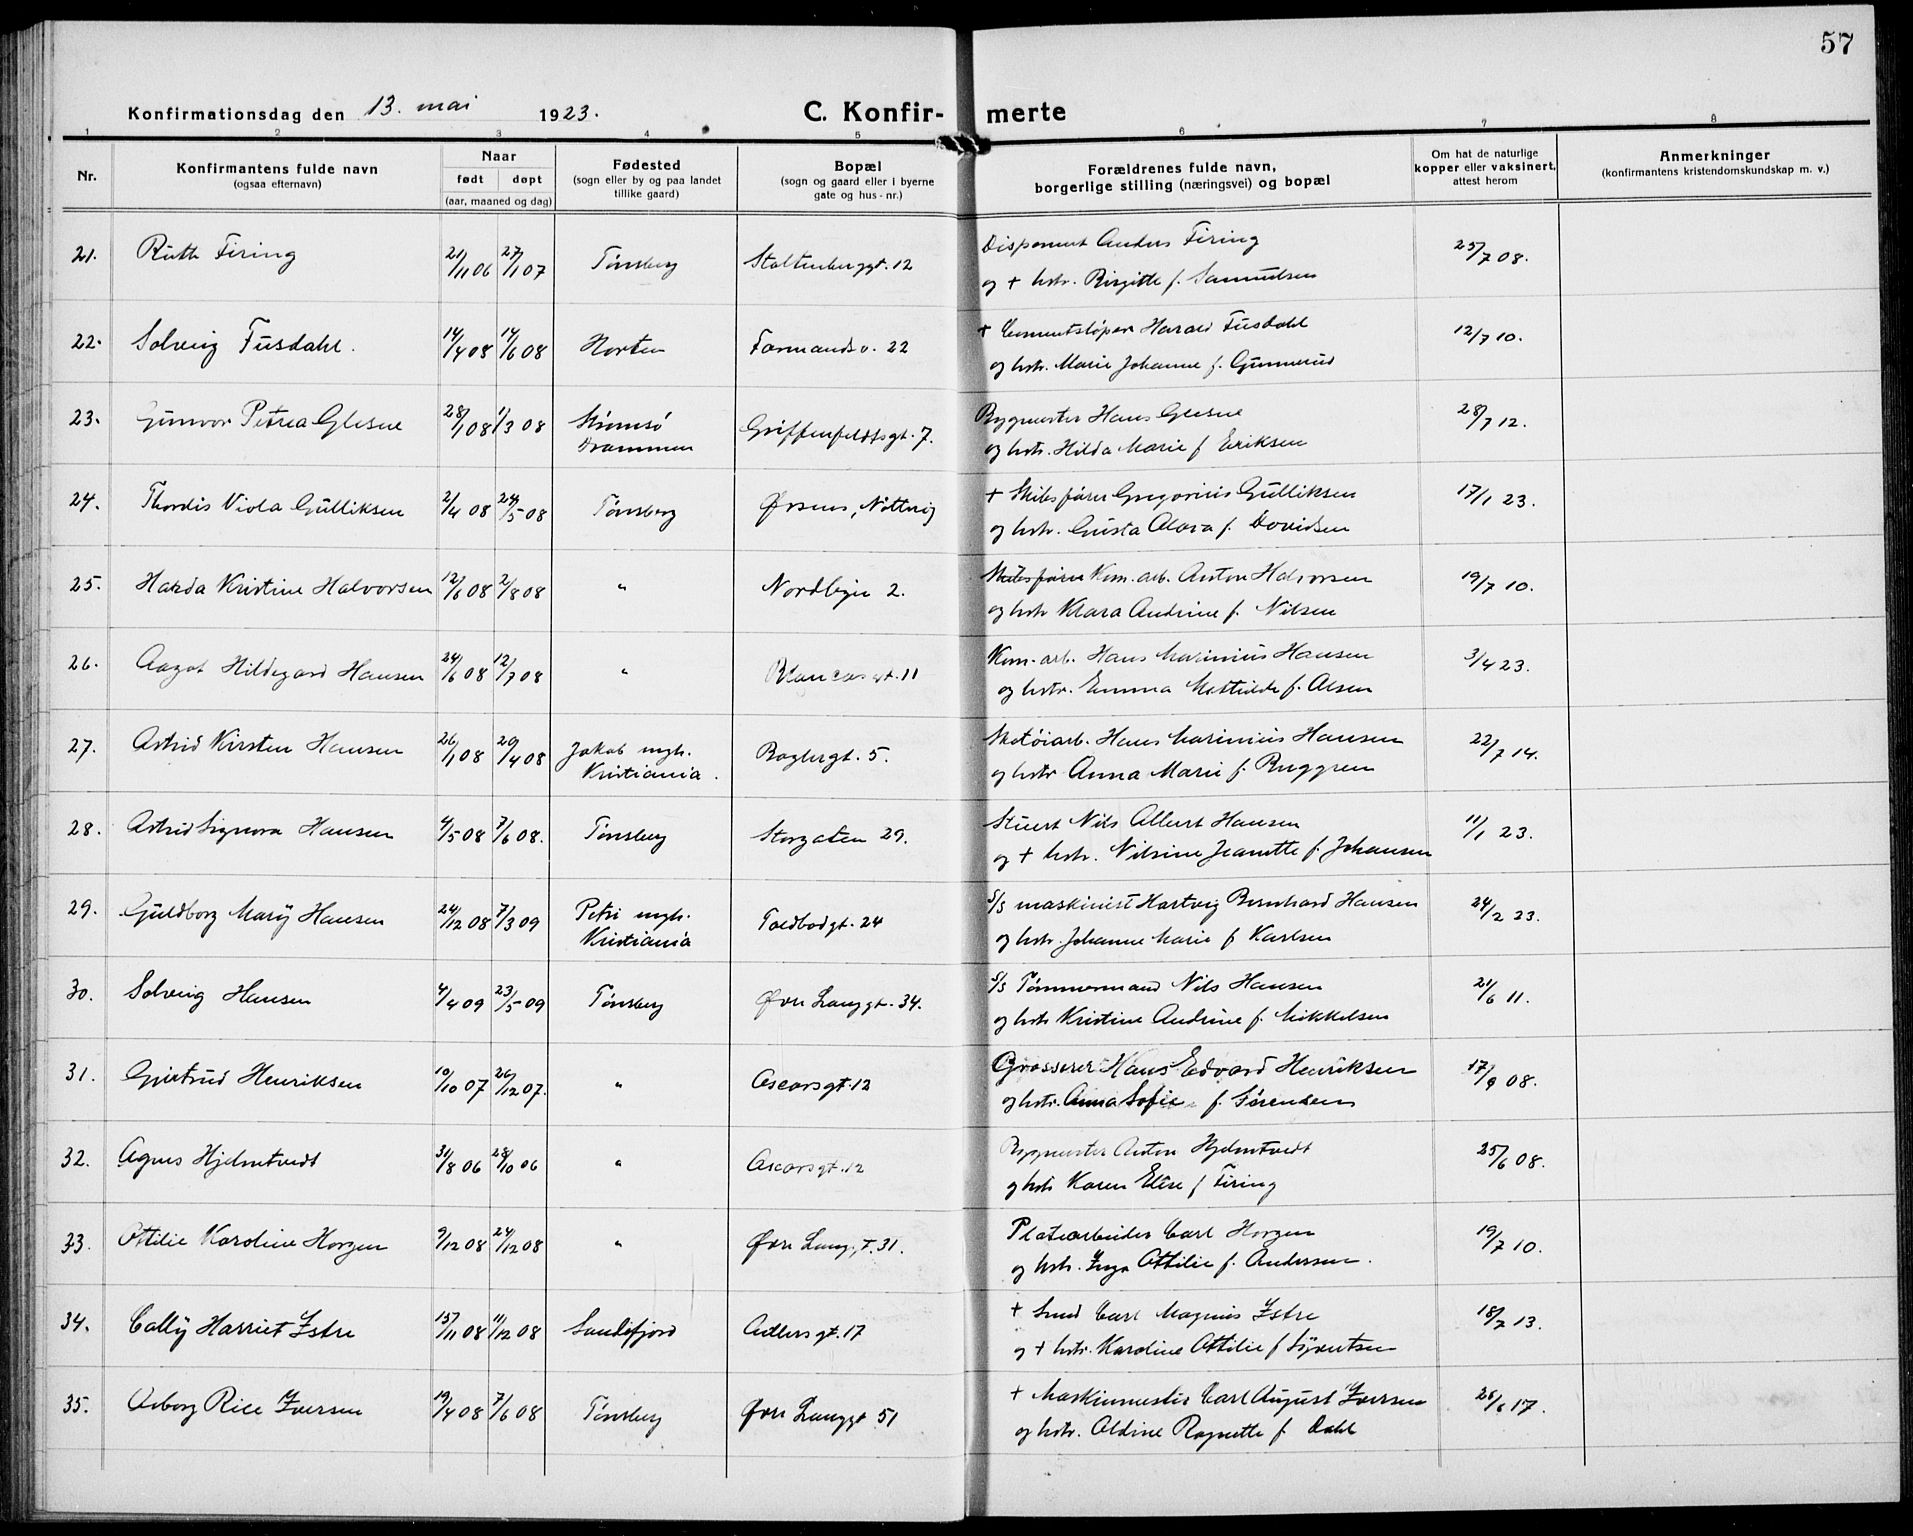 57
Konfirmationsdag den 13. mai 1923.
C. Konfir- merte
1 2 3 4 5 6 7 8
Nr.
Konfirmantens fulde navn
(ogsaa efternavn)
Naar
født døpt
(aar, maaned og dag)
Fødested
(sogn eller by og paa landet
tillike gaard)
Bopæl
(sogn og gaard eller i byerne
gate og hus-nr.)
Forældrenes fulde navn,
borgerlige stilling (næringsvei) og bopæl
Om hat de naturlige
kopper eller vaksinert,
attest herom
Anmerkninger
(konfirmantens kristendomskundskap m. v.)
21. Ruth Firing 21/11 06 27/1 07 Tønsberg Stoltenberggt. 12 Disponent Anders Firing 25/7 08.
og + hstr. Birgitte f. Samuelsen
22. Solveig Fusdahl. 14/4 08 14/6 08 Horten Formandsv. 22 + Cementstøper Harald Fusdahl 12/7 10.
og hstr. Marie Johanne f. Gunnerud
23. Gunvor Petrea Glesne 28/1 08 1/3 08 Strømsø Griffenfeldtsgt. 7. Bygmester Hans Glesne 28/7 12.
Drammen og hstr. Hilda Marie f Eriksen
24. Thordis Viola Gulliksen 2/4 08 24/5 08 Tønsberg Ørsnes, Nøtterø + Skibsfører Gregorius Gulliksen 17/1 23.
og hstr. Gusta Alora f. Davidsen
25. Harda Kristine Halvorsen 12/6 08 2/8 08 " Nordbyen 2. Kom. arb. Anton Halvorsen 19/7 10.
og hstr Klara Andrine f. Nilsen
26. Aagot Hildegard Hansen 24/6 08 12/7 08 " Blancasgt. 11 Kom. arb. Hans Marinius Hansen 3/4 23.
og hstr. Emma Mathilde f. Olsen
27. Astrid Kirsten Hansen 26/1 08 20/4 08 Jakob mgh. Baglergt. 5. Skotøiarb. Hans Marinius Hansen 22/7 14.
Kristiania. og hstr Anna Marie f. Bryggren
28. Astrid Signora Hansen 4/5 08 7/6 08. Tønsberg Storgaten 29. Stuert Nils Albert Hansen 11/1 23.
og + hstr. Nilsine Jeanette f. Johansen
29. Guldborg Mary Hansen 24/12 08 7/3 09 Petri mgh. Toldbodgt. 24 S/S maskinist Hartvig Bernhard Hansen 24/2 23.
Kristiania og hstr. Johanne Marie f Karlsen
30. Solveig Hansen 4/4 09 23/5 09 Tønsberg Øvre Langgt. 34. S/S Tømmermand Nils Hansen 21/6 11.
og hstr Kristine Andrine f. Mikkelsen
31. Gjertrud Henriksen 19/10 07 26/12 07. " Oscarsgt. 12 Grosserer Hans Edvard Henriksen 17/9 08.
og hstr. Anna Sofie f. Sørensen
32. Agnes Hjelmtvedt 31/8 06 28/10 06 " Oscarsgt. 12 Bygmester Anton Hjelmtvedt 25/6 08.
og hstr Karen Elise f Firing
33. Ottilie Karoline Horgen 9/12 08 24/12 08 " Øvre Langgt. 31. Platearbeider Carl Horgen 19/7 10.
og hstr. Inga Ottilie f. Andersen.
34. Cally Harriet Istre 15/11 08 11/12 08 Sandefjord Adlersgt. 17 + Smed Carl Magnus Istre 18/7 13.
og + hstr. Karoline Ottilie f Syvertsen
35. Asborg Rice Iversen 19/4 08 7/6 08 Tønsberg Øvre Langgt 51 + Maskinmester Carl August Iversen 26/6 17.
og hstr. Aldine Ragnette f Dahl